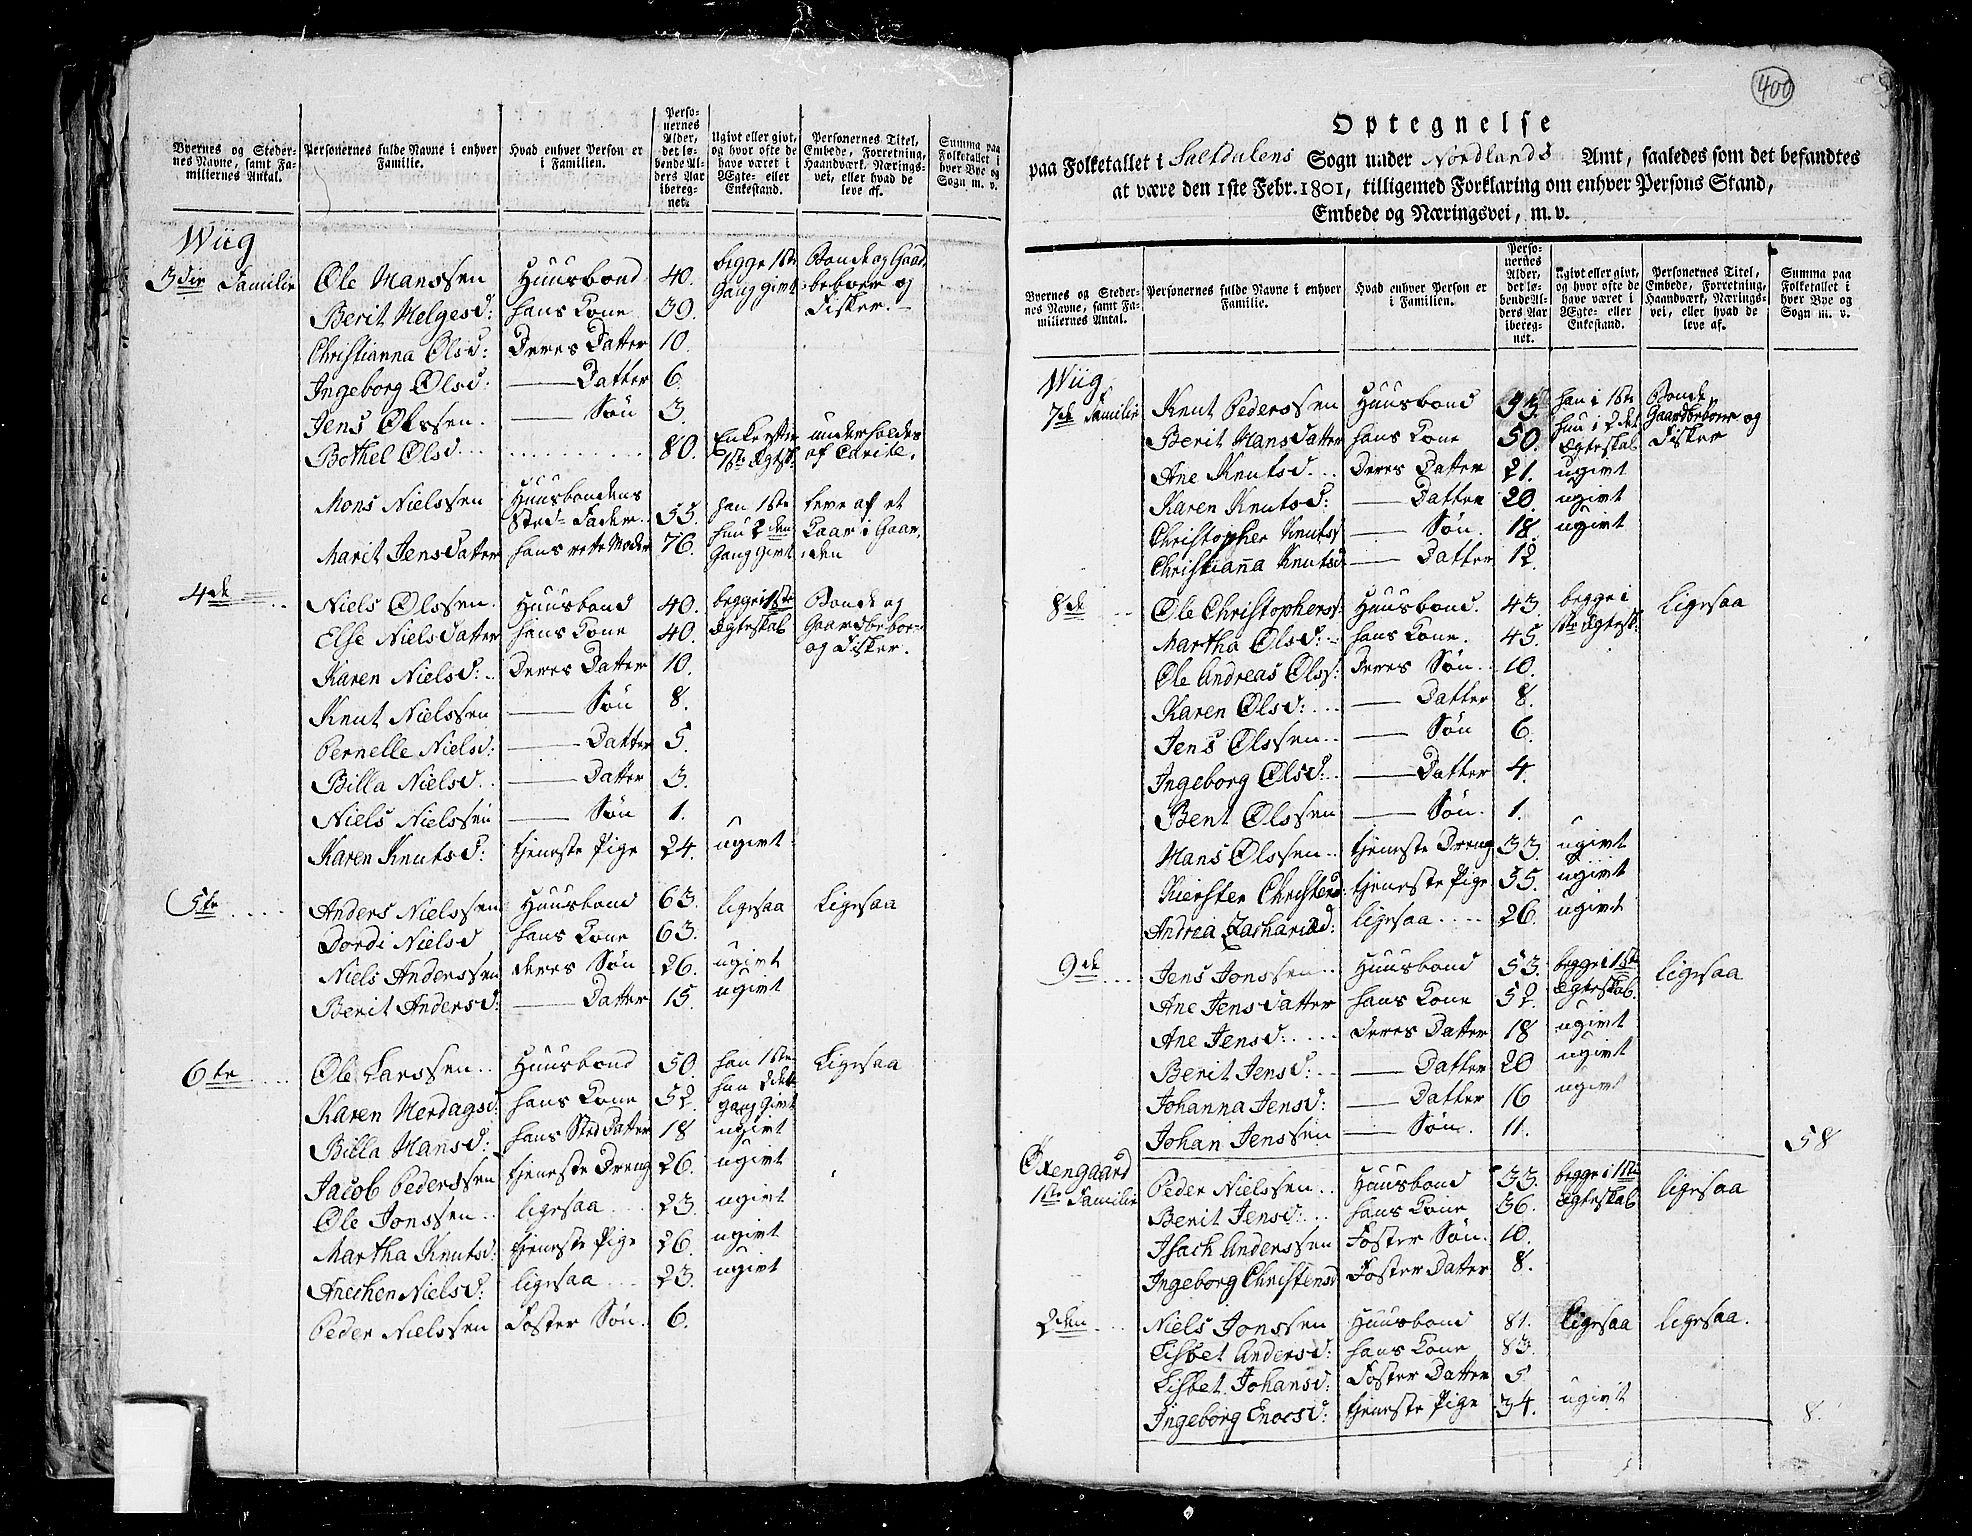 400
Byernes og Steder-
nes Navne, samt Fa-
miliernes Antal.
Personernes fulde Navne i enhver
Familie.
Hvad enhver Person er
i Familien.
Perso-
nernes
Alder,
det lø-
bende Al-
ders Aar
ibereg-
net.
Ugivt eller givt,
og hvor ofte de
have været i
Ægte- eller
Enkestand.
Personernes Titel,
Embede, Forretning,
Haandværk, Nærings-
vei, eller hvad de
leve af.
Summa paa
Folketallet i
hver Bye og
Sogn m. v.
Wiig
3die Familie Ole Hanssen Huusbond 40. begge 1ste Gang givt Bonde og Gaardbeboer og Fisker.
Berit Helgesd: hans Kone 39.
Christianna Olsd: Deres Datter 10.
Ingeborg Olsd: Datter 6.
Jens Olssen. Søn 3.
Bothel Olsd. 80. Enke efter 1ste Ægtsk: underholdes af
Mons Nielssen Huusbondens Sted-Fader 55. han 1ste hun 2den Gang Givt leve af et Kaar i Gaarden
Marit Jensdatter hans rette Moder 76.
4de Niels Olssen. Huusbond 40. begge i 1ste Ægteskab Bonde og Gaardbeboer og Fisker.
Else Nielsdatter hans Kone 40.
Karen Nielsd: Deres Datter 10.
Knut Nielssen Søn 8.
Pernelle Nielsd: Datter 5.
Billa Nielsd. Datter 3.
Niels Nielssen Søn 1.
Karen Knutsd: tjeneste Pige 24. ugivt
5te Anders Nielssen Huusbond 63. ligesaa Ligesaa
Dordi Nielsd hans Kone 63.
Niels Anderssen deres Søn 26. ugivt
Berit Andersd: Datter 15. ugivt
6te Ole Larssen Huusbond 50. han 1ste hun 2det gang Givt Ligesaa
Karen Herdagsd: hans Kone 52.
Billa Hansd: hans Sted Datter 18 ugivt
Jacob Pederssen tjeneste Dreng 26. ugivt
Ole Jonssen ligesaa 23. ugivt
Martha Knutsd: tjeneste Pige 26. ugivt
Anechen Nielsd: ligesaa 23. ugivt
Peder Nielssen Foster Søn. 6.
Optegnelse
paa Folketallet i Saltdalens Sogn under Nordlands Amt, saaledes som det befandtes
at være den 1ste Febr. 1801, tilligemed Forklaring om enhver Persons Stand,
Embede og Næringsvei, m. v.
Byernes og Steder-
nes Navne, samt Fa-
miliernes Antal.
Personernes fulde Navne i enhver
Familie.
Hvad enhver Person er
i Familien.
Perso-
nernes
Alder,
det lø-
bende Al-
ders Aar
ibereg-
net.
Ugivt eller givt,
og hvor ofte de
have været i
Ægte- eller
Enkestand.
Personernes Titel,
Embede, Forretning,
Haandværk, Nærings-
vei, eller hvad de
leve af.
Summa paa
Folketallet i
hver Bye og
Sogn m. v.
Wiig
7de Familie Knut Pederssen Huusbond han i 1ste hun i 2det Ægteskab Bonde Gaardbeboer og Fisker
Berit Hansdatter hans Kone 50.
Ane Knutsd. Deres Datter 21. ugivt
Karen Knutsd: Datter 20. ugivt
Christopher Knuts Søn. 18. ugivt
Christianna Knutsd Datter 12.
8de Ole Christophers: Huusbond. 43. begge i 1ste Ægtesk: Ligesaa
Martha Olsd: hans Kone. 45.
Ole Andreas Olss: Deres Søn. 10.
Karen Olsd: Datter 8.
Jens Olssen Søn 6.
Ingeborg Olsd: Datter 4.
Bent Olssen Søn. 1.
Hans Olssen tjeneste Dreng 33. ugivt
Kiersten tjeneste Pige 55. ugivt
Andrea Zachariæd: ligesaa 26. ugivt
9de Jens Jonssen Huusbond 53. begge i 1ste Ægteskab. Ligesaa
Ane Jensdatter hans Kone 52.
Ane Jensd: Deres Datter 18 ugivt
Berit Jensd: Datter 20 ugivt
Johanna Jensd: Datter 16 ugivt
Johan Jenssen Søn. 11.
58
Oxengaard
1ste Familie Peder Nielssen Huusbond 33. begge i 1ste Ægteskab ligesaa
Berit Jensd: hans Kone 36.
Isach Anderssen Foster Søn. 10.
Ingeborg Christensd Foster Datter 8.
2den Niels Jonssen Huusbond 81. Ligesaa ligesaa.
Lisbet Andersd: hans Kone 83.
Lisbet Johansd: Foster Datter 5
Ingeborg Enocsd: tjeneste Pige 34. ugivt
8.